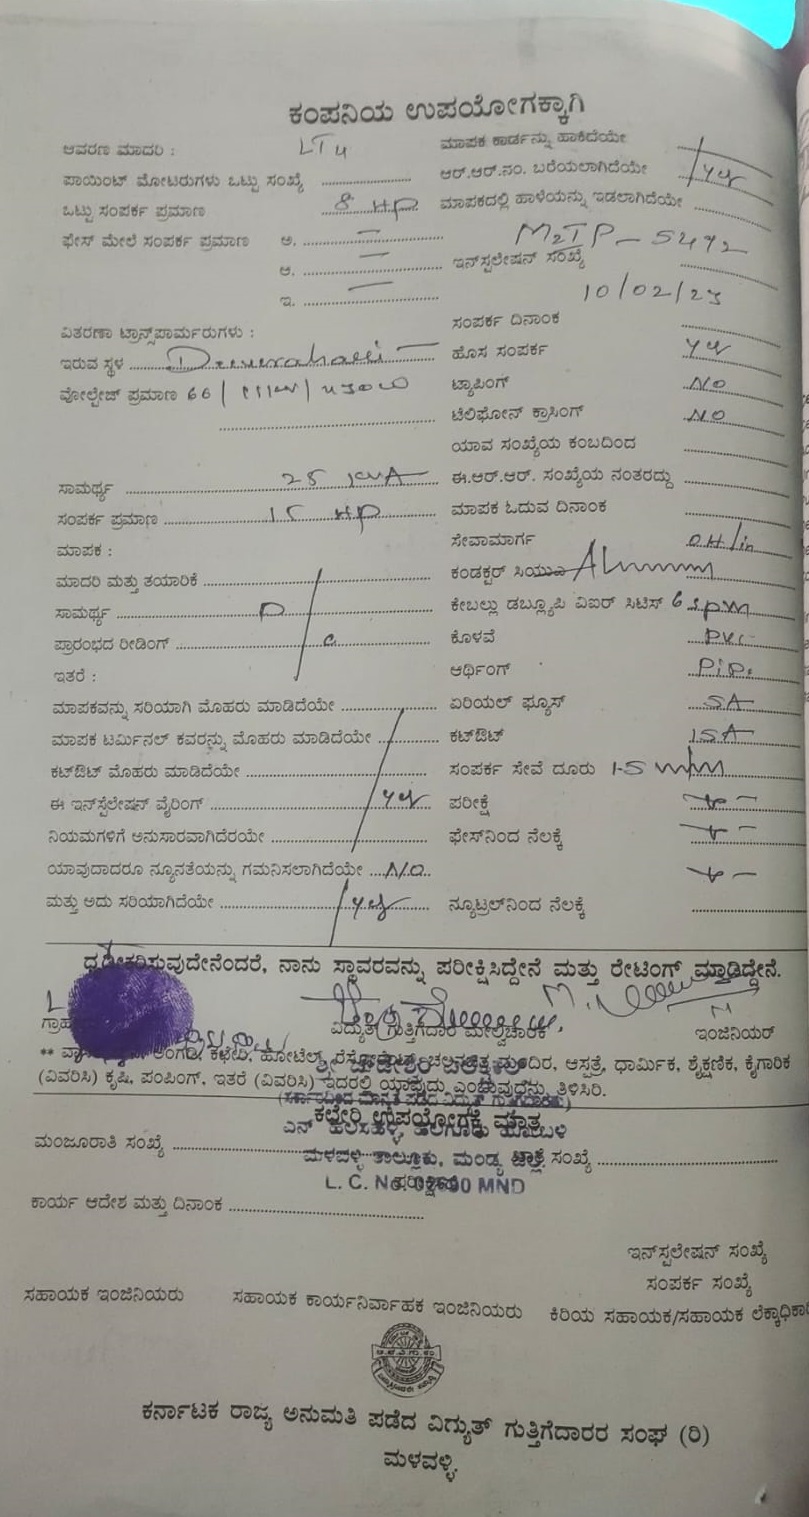 ಕಂಪನಿಯ ಉಪಯೋಗಕ್ಕಾಗಿ
ಆವರಣ ಮಾದರಿ : LT4
ಪಾಯಿಂಟ್ ಮೋಟರುಗಳು ಒಟ್ಟು ಸಂಖ್ಯೆ
ಒಟ್ಟು ಸಂಪರ್ಕ ಪ್ರಮಾಣ 8 HP
ಫೇಸ್ ಮೇಲೆ ಸಂಪರ್ಕ ಪ್ರಮಾಣ ಅ. —
ಆ. —
ಇ. —
ವಿತರಣಾ ಟ್ರಾನ್ಸ್‌ಪಾರ್ಮರುಗಳು :
ಇರುವ ಸ್ಥಳ
ವೋಲ್ಟೇಜ್ ಪ್ರಮಾಣ 66 /
ಸಾಮರ್ಥ್ಯ 25 KVA
ಸಂಪರ್ಕ ಪ್ರಮಾಣ 15 HP
ಮಾಪಕ :
ಮಾದರಿ ಮತ್ತು ತಯಾರಿಕೆ
ಸಾಮರ್ಥ್ಯ D
ಪ್ರಾರಂಭದ ರೀಡಿಂಗ್ C
ಇತರೆ :
ಮಾಪಕವನ್ನು ಸರಿಯಾಗಿ ಮೊಹರು ಮಾಡಿದೆಯೇ
ಮಾಪಕ ಟರ್ಮಿನಲ್ ಕವರನ್ನು ಮೊಹರು ಮಾಡಿದೆಯೇ
ಕಟ್‌ಔಟ್ ಮೊಹರು ಮಾಡಿದೆಯೇ
ಈ ಇನ್‌ಸ್ಪೆಲೇಷನ್ ವೈರಿಂಗ್ yes
ನಿಯಮಗಳಿಗೆ ಅನುಸಾರವಾಗಿದೆರಯೇ
ಯಾವುದಾದರೂ ನ್ಯೂನತೆಯನ್ನು ಗಮನಿಸಲಾಗಿದೆಯೇ N.O.
ಮತ್ತು ಅದು ಸರಿಯಾಗಿದೆಯೇ yes
ಮಾಪಕ ಕಾರ್ಡನ್ನು ಹಾಕಿದೆಯೇ
ಆರ್.ಆರ್.ನಂ. ಬರೆಯಲಾಗಿದೆಯೇ yes
ಮಾಪಕದಲ್ಲಿ ಹಾಳೆಯನ್ನು ಇಡಲಾಗಿದೆಯೇ
M2TP-5472
ಇನ್‌ಸ್ಪಲೇಷನ್ ಸಂಖ್ಯೆ
10/02/23
ಸಂಪರ್ಕ ದಿನಾಂಕ
ಹೊಸ ಸಂಪರ್ಕ yes
ಟ್ಯಾಪಿಂಗ್ NO
ಟೆಲಿಫೋನ್ ಕ್ರಾಸಿಂಗ್ NO
ಯಾವ ಸಂಖ್ಯೆಯ ಕಂಬದಿಂದ
ಈ.ಆರ್.ಆರ್. ಸಂಖ್ಯೆಯ ನಂತರದ್ದು
ಮಾಪಕ ಓದುವ ದಿನಾಂಕ
ಸೇವಾಮಾರ್ಗ OH/in
ಕಂಡಕ್ಟರ್ ಸಿಯುಎ
ಕೇಬಲ್ಲು ಡಬ್ಲ್ಯೂಪಿ ವಿಐರ್ ಸಿಟಿಸ್
ಕೊಳವೆ PVC
ಆರ್ಥಿಂಗ್ Pipe
ಏರಿಯಲ್ ಫ್ಯೂಸ್ 5A
ಕಟ್‌ಔಟ್ 15A
ಸಂಪರ್ಕ ಸೇವೆ ದೂರು
ಪರೀಕ್ಷೆ
ಫೇಸ್‌ನಿಂದ ನೆಲಕ್ಕೆ
ನ್ಯೂಟ್ರಲ್‌ನಿಂದ ನೆಲಕ್ಕೆ
ಧೃಡೀಕರಿಸುವುದೇನೆಂದರೆ, ನಾನು ಸ್ಥಾವರವನ್ನು ಪರೀಕ್ಷಿಸಿದ್ದೇನೆ ಮತ್ತು ರೇಟಿಂಗ್ ಮಾಡಿದ್ದೇನೆ.
ವಿದ್ಯುತ್ ಗುತ್ತಿಗೆದಾರ ಮೇಲ್ವಿಚಾರಕ ಇಂಜಿನಿಯರ್
** ಅಂಗಡಿ, ಕಛೇರಿ, ಹೋಟೆಲ್, ಮಂದಿರ, ಆಸ್ಪತ್ರೆ, ಧಾರ್ಮಿಕ, ಶೈಕ್ಷಣಿಕ, ಕೈಗಾರಿಕ
(ವಿವರಿಸಿ) ಕೃಷಿ, ಪಂಪಿಂಗ್, ಇತರೆ (ವಿವರಿಸಿ) ಇದರಲ್ಲಿ ಯಾವುದು ಎಂಬುವುದನ್ನು ತಿಳಿಸಿರಿ.
ಕಛೇರಿ ಉಪಯೋಗಕ್ಕೆ ಮಾತ್ರ
ಮಂಜೂರಾತಿ ಸಂಖ್ಯೆ
ಮಳವಳ್ಳಿ ತಾಲ್ಲೂಕು, ಮಂಡ್ಯ ಸಂಖ್ಯೆ
ಕಾರ್ಯ ಆದೇಶ ಮತ್ತು ದಿನಾಂಕ
ಇನ್‌ಸ್ಪಲೇಷನ್ ಸಂಖ್ಯೆ
ಸಂಪರ್ಕ ಸಂಖ್ಯೆ
ಸಹಾಯಕ ಇಂಜಿನಿಯರು ಸಹಾಯಕ ಕಾರ್ಯನಿರ್ವಾಹಕ ಇಂಜಿನಿಯರು ಕಿರಿಯ ಸಹಾಯಕ/ಸಹಾಯಕ
ಕರ್ನಾಟಕ ರಾಜ್ಯ ಅನುಮತಿ ಪಡೆದ ವಿದ್ಯುತ್ ಗುತ್ತಿಗೆದಾರರ ಸಂಘ (ರಿ)
ಮಳವಳ್ಳಿ.